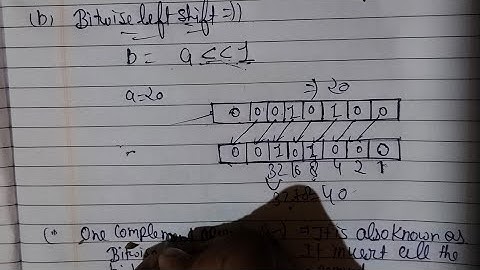 (b) Bitwise left shift =))
b = a << 1
a=20 => 20
0 0 0 1 0 1 0 0
0 0 1 0 1 0 0 0
32 16 8 4 2 1
32+8=40
One complement (~) => It is also known as
Bitwise It invert all the